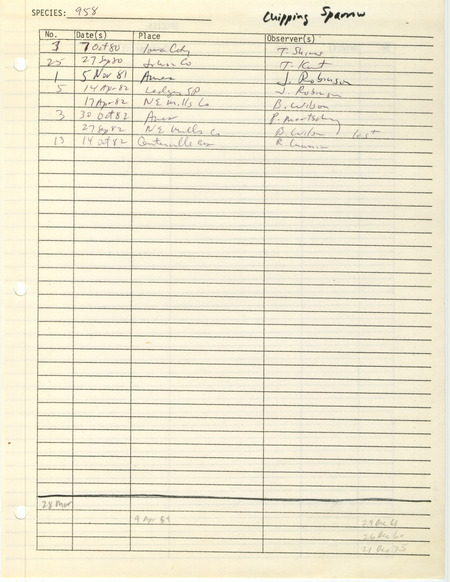 SPECIES: 958 Chipping Sparrow
No. Date(s) Place Observer(s)
3 7 Oct 80 Iowa City T. Shires
25 27 Sep 80 Johnson Co T. Kent
1 5 Nov 81 Ames J. Robinson
5 14 Apr 82 Ledges SP J. Robinson
17 Apr 82 N E Mills Co B. Wilson
3 30 Oct 82 Ames P. Martsching
27 Sep 82 N E Mills Co B. Wilson last
13 14 Oct 82 Centerville R. Cummins
28 Mar
9 Apr 84 29 Dec
26 Dec 60
21 Dec 75